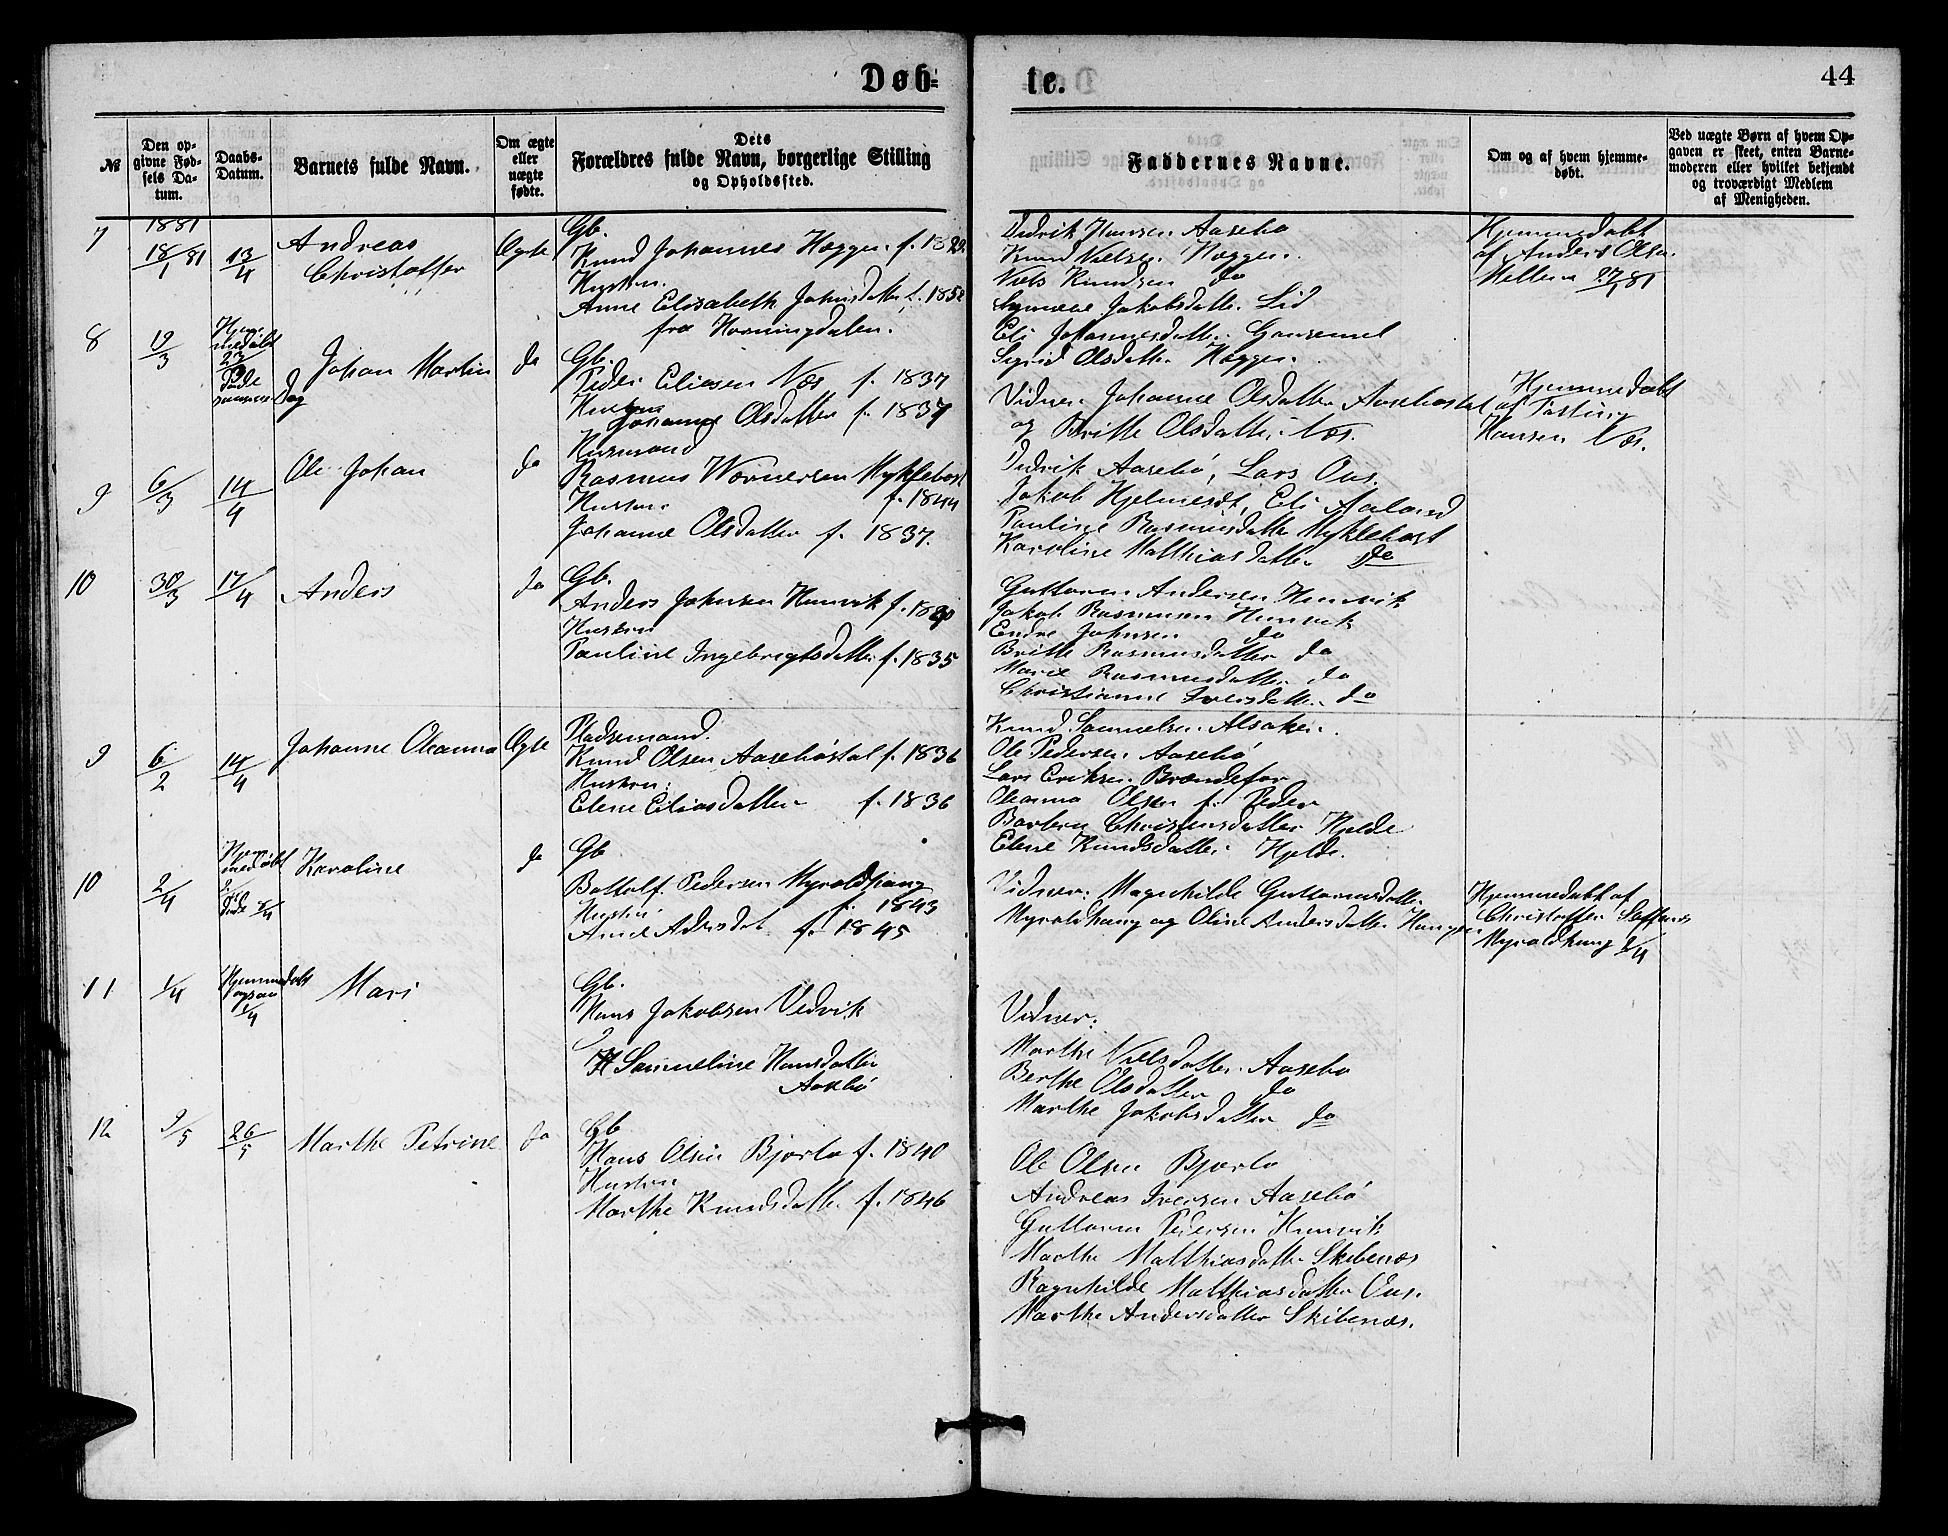 Døb=
te.
44
№
Den opgivne Fødsels Datum.
Daabs-Datum.
Barnets fulde Navn.
Om ægte eller uægte fødte.
Dets Forældres fulde Navn, borgerlige Stilling og Opholdsfted.
Faddernes Navne.
Om og af hvem hjemmedøbt.
Ved uægte Børn af hvem Opgaven er skeet, enten Barnemoderen eller hvilket bekjendt og troværdigt Medlem af Menigheden.
7
1881
18/1 81
13/4
Andreas
Christoffer
Ægte
Gb.
Knud Johannes Hoggen f.
Hustru.
Anne Elisabeth Johnsdatter f. 1852
fra Horningdalen.
Didrik Hansen Aasebø
Knud Nielsen Hoggen.
Niels Knudsen do
Jakobsdatter Lid
Eli Johannesdatter
Sigrid Olsdatter Hoggen.
Hjemmedøbt
af Anders Olsen
27/1 81
8
19/3
Hjemmedøbt
23/3
Døde
Dag
Johan Martin
do
Gb.
Peder Eliesen Næs f. 1837
Hustru
Johanne Olsdatter f. 1837
Vidner. Johanne Olsdatter Aasebøstøl
og Britte Olsdatter Næs.
Hjemmedøbt
af
Hansen Næs.
9
6/3
14/4
Ole Johan
do
Husmand
Rasmus Wernersen Myklebost
Hustru. f. 1844
Johanne Olsdatter f. 1837.
Didrik Aasebø, Lars Ous.
Jakob Hjelmeset, Eli Aaland
Pauline Rasmusdatter Myklebost
Karoline Matthiasdatter do
10
30/3
17/4
Anders
do
Gb.
Anders Johnsen Hunvik f.
Hustru
Pauline Ingebregtsdatter f. 1835
Guttorm Andersen Hunvik
Jakob Rasmusen Hunvik
Endre Johnsen do
Britte Rasmusdatter do
Marie Rasmusdatter do
Christianne Iversdatter do
9
6/2
14/4
Johanne Oleanna
Ægte
Pladsemand.
Knud Olsen Aasebøstøl f. 1836
Hustru:
Elene Eliasdatter f. 1836
Knud Samuelsen Alsaker.
Ole Pedersen Aasebø
Lars Eriksen Brændefor
Oleanna Olsen f. Peder
Barbra Christensdatter Hjelde
Elene Knudsdatter Hjelde.
10
2/4
Hjemmedøbt
Karoline
do
Gb
Bottolf Pedersen Myroldhaug
Hustru. f. 1843
Anne f. 1845
Vidner: Magnhilde Guttormsdatter
Myroldhaug og Oline Andersdatter
Hjemmedøbt af
Christoffer
Myroldhaug 2/4
11
1/4
Hjemmedøbt
1/4
Mari
Gb.
Hans Jakobsen Vedvik
H Sammeline Hansdatter
Aasebø
Vidner:
Marthe Nielsdatter Aasebø
Berthe Olsdatter do
Marthe Jakobsdatter do
12
9/5
26/5
Marthe Petrine
do
Gb
Hans Olsen Bjørlo f. 1840
Hustru
Marthe Knudsdatter f. 1846
Ole Olsen Bjørlo
Andreas Iversen Aasebø
Guttorm Pedersen Hunvik
Marthe Matthiasdatter Skibenæs
Ragnhilde Matthiasdatter Ous.
Marthe Andersdatter Skibenæs.